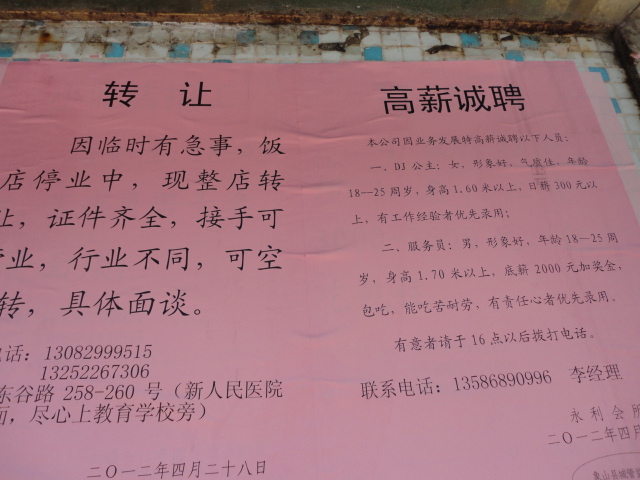 转 让
因临时有急事，饭
店停业中，现整店转
让，证件齐全，接手可
营业，行业不同，可空
转，具体面谈。
电话：13082999515
13252267306
东谷路 258-260 号（新人民医院
面，尽心上教育学校旁）
二〇一二年四月二十八日
高薪诚聘
本公司因业务发展特高薪诚聘以下人员：
一、DJ 公主：女，形象好，气质佳，年龄
18—25 周岁，身高 1.60 米以上，日薪 300 元以
上，有工作经验者优先录用；
二、服务员：男，形象好，年龄 18—25 周
岁，身高 1.70 米以上，底薪 2000 元加奖金，
包吃，能吃苦耐劳，有责任心者优先录用。
有意者请于 16 点以后拨打电话。
联系电话：13586890996 李经理
永利会所
二〇一二年四月
象山县城管